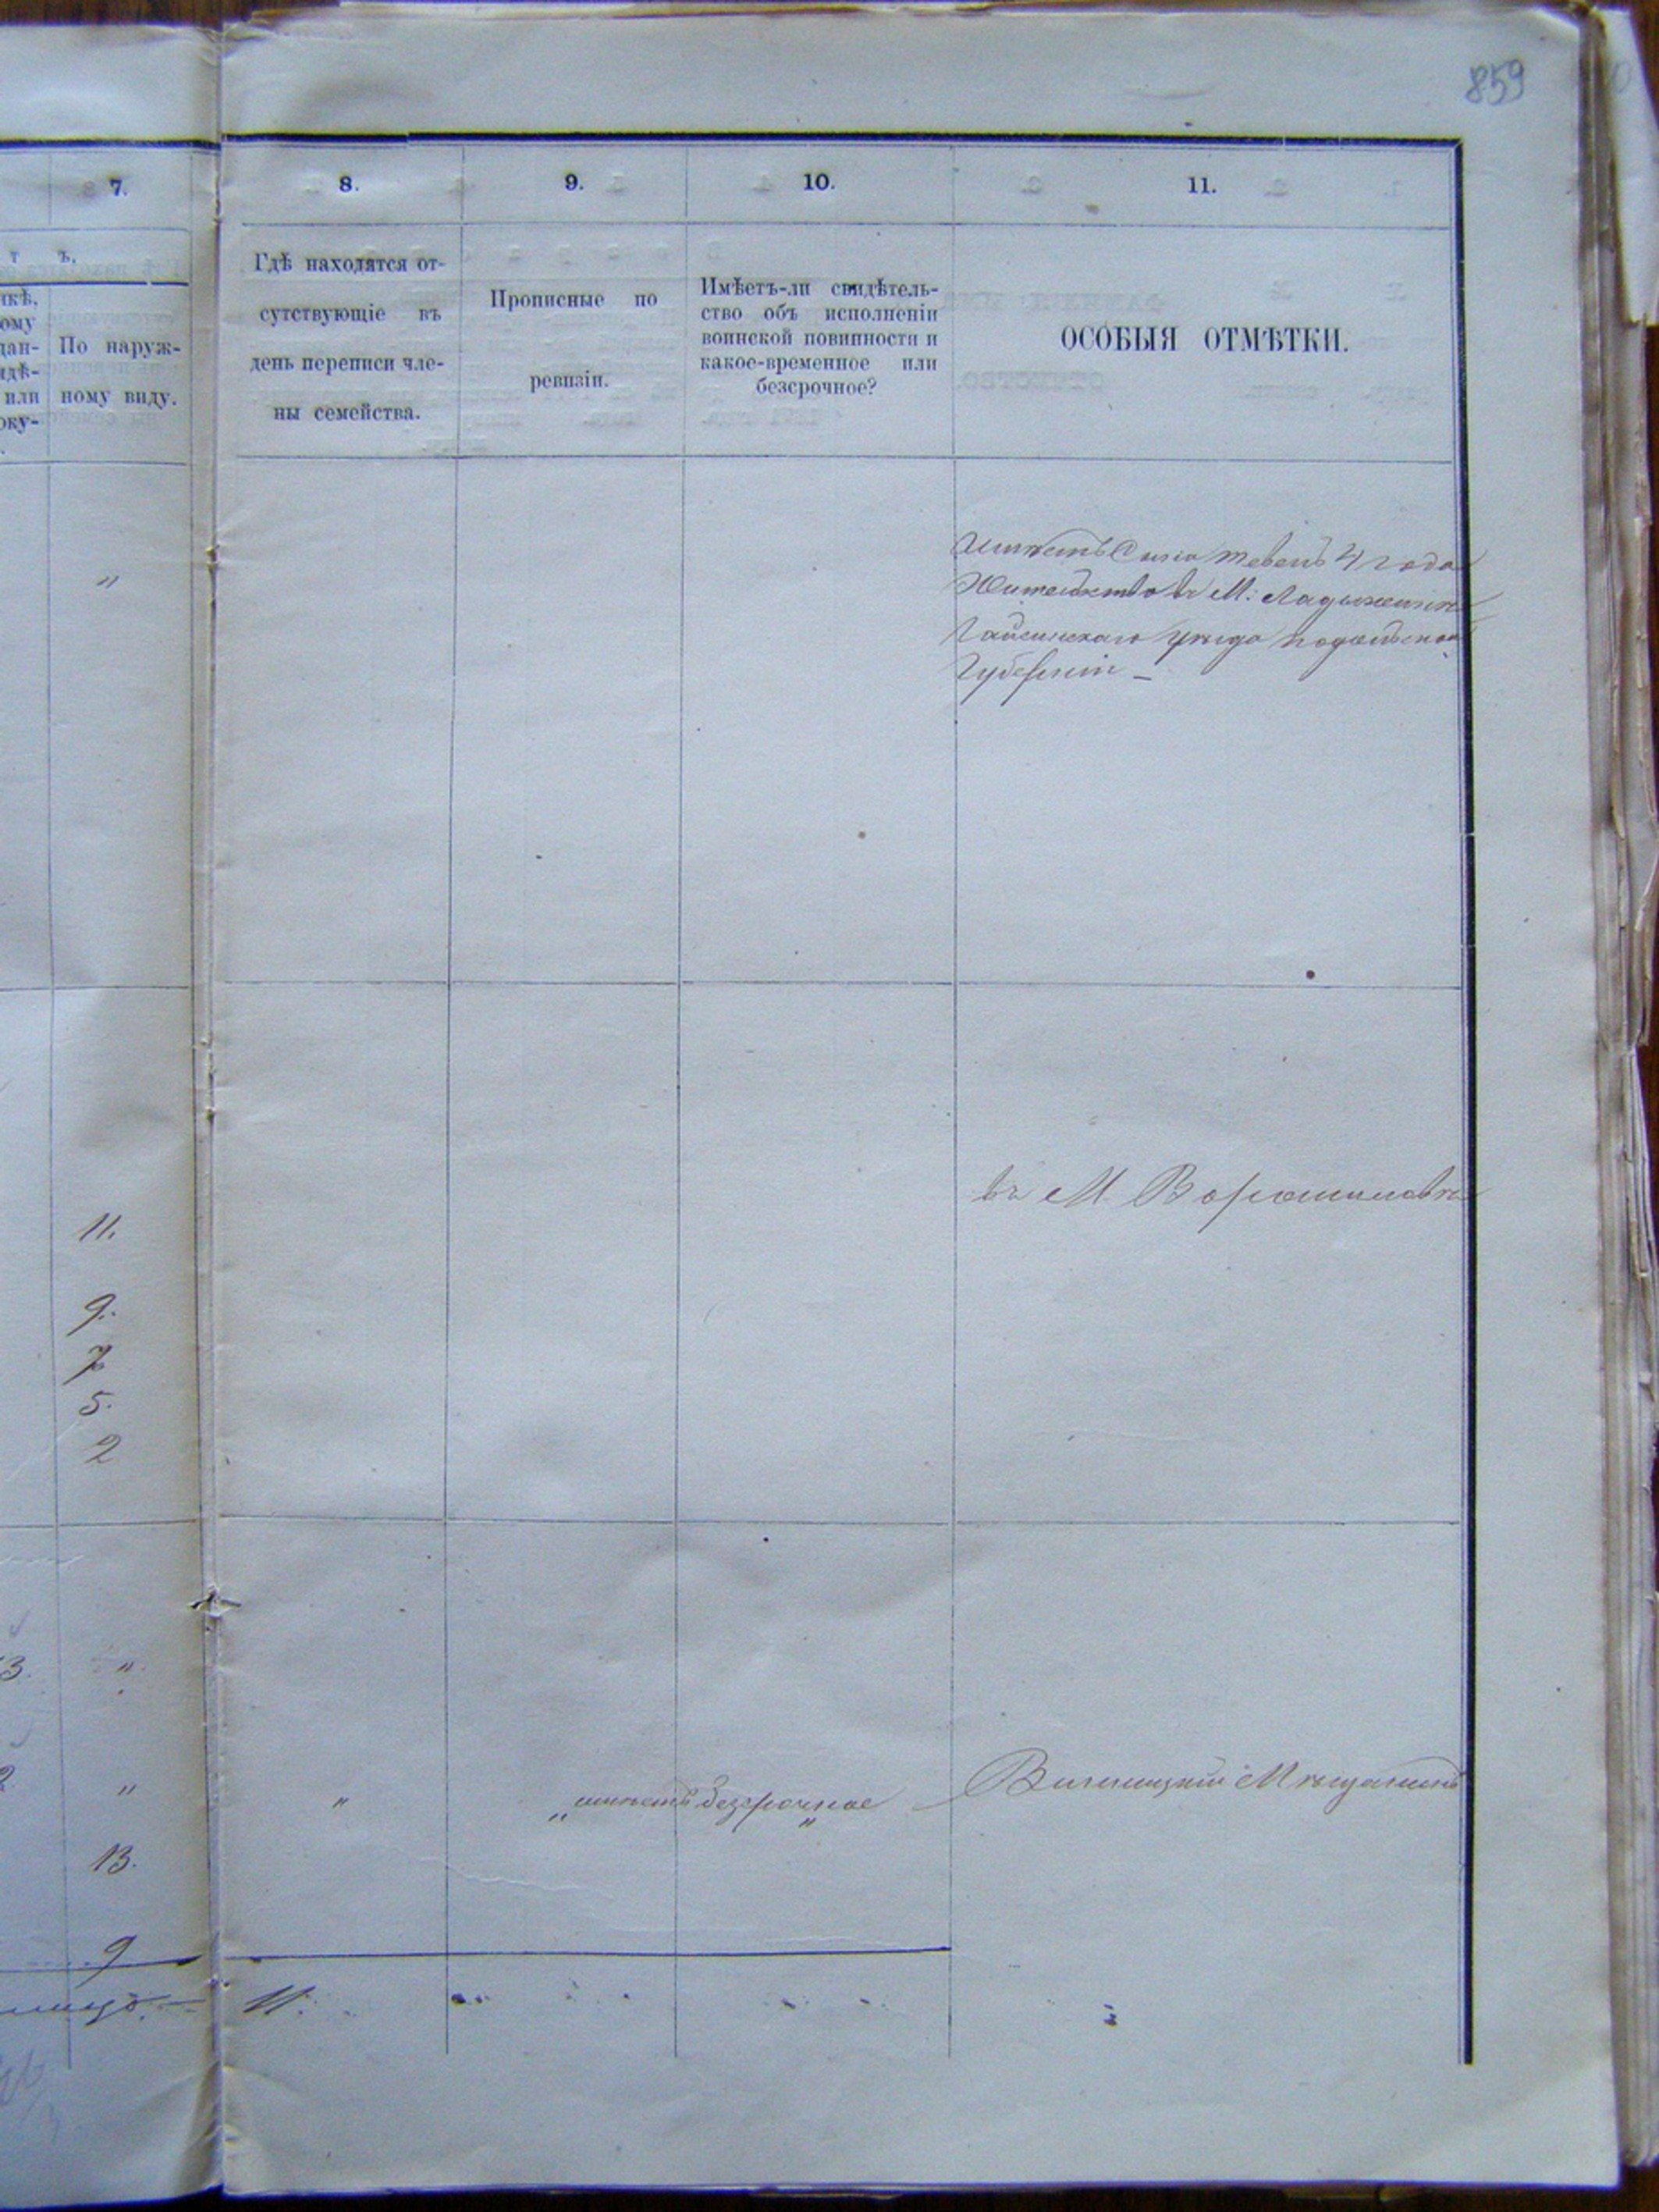 859
7.
8.
9.
10.
11.
т ъ.
По наруж-
ному виду.
Гдѣ находятся от-
сутствующіе въ
день переписи чле-
ны семейства.
Прописные по
ревизіи.
Имѣетъ-ли свидѣтель-
ство объ исполненіи
воинской повинности и
какое-временное или
безсрочное?
ОСОБЫЯ ОТМѢТКИ.
"
имѣетъ Сына 4 года
Жительство въ М. Ладыжинѣ
Гайсинскаго уѣзда подольской
Губерніи –
въ М Ворошиловкѣ
11.
9.
7
5.
2
3. "
" " " имѣетъ безсрочное " Винницкій Мѣщанинъ
13.
9
11.